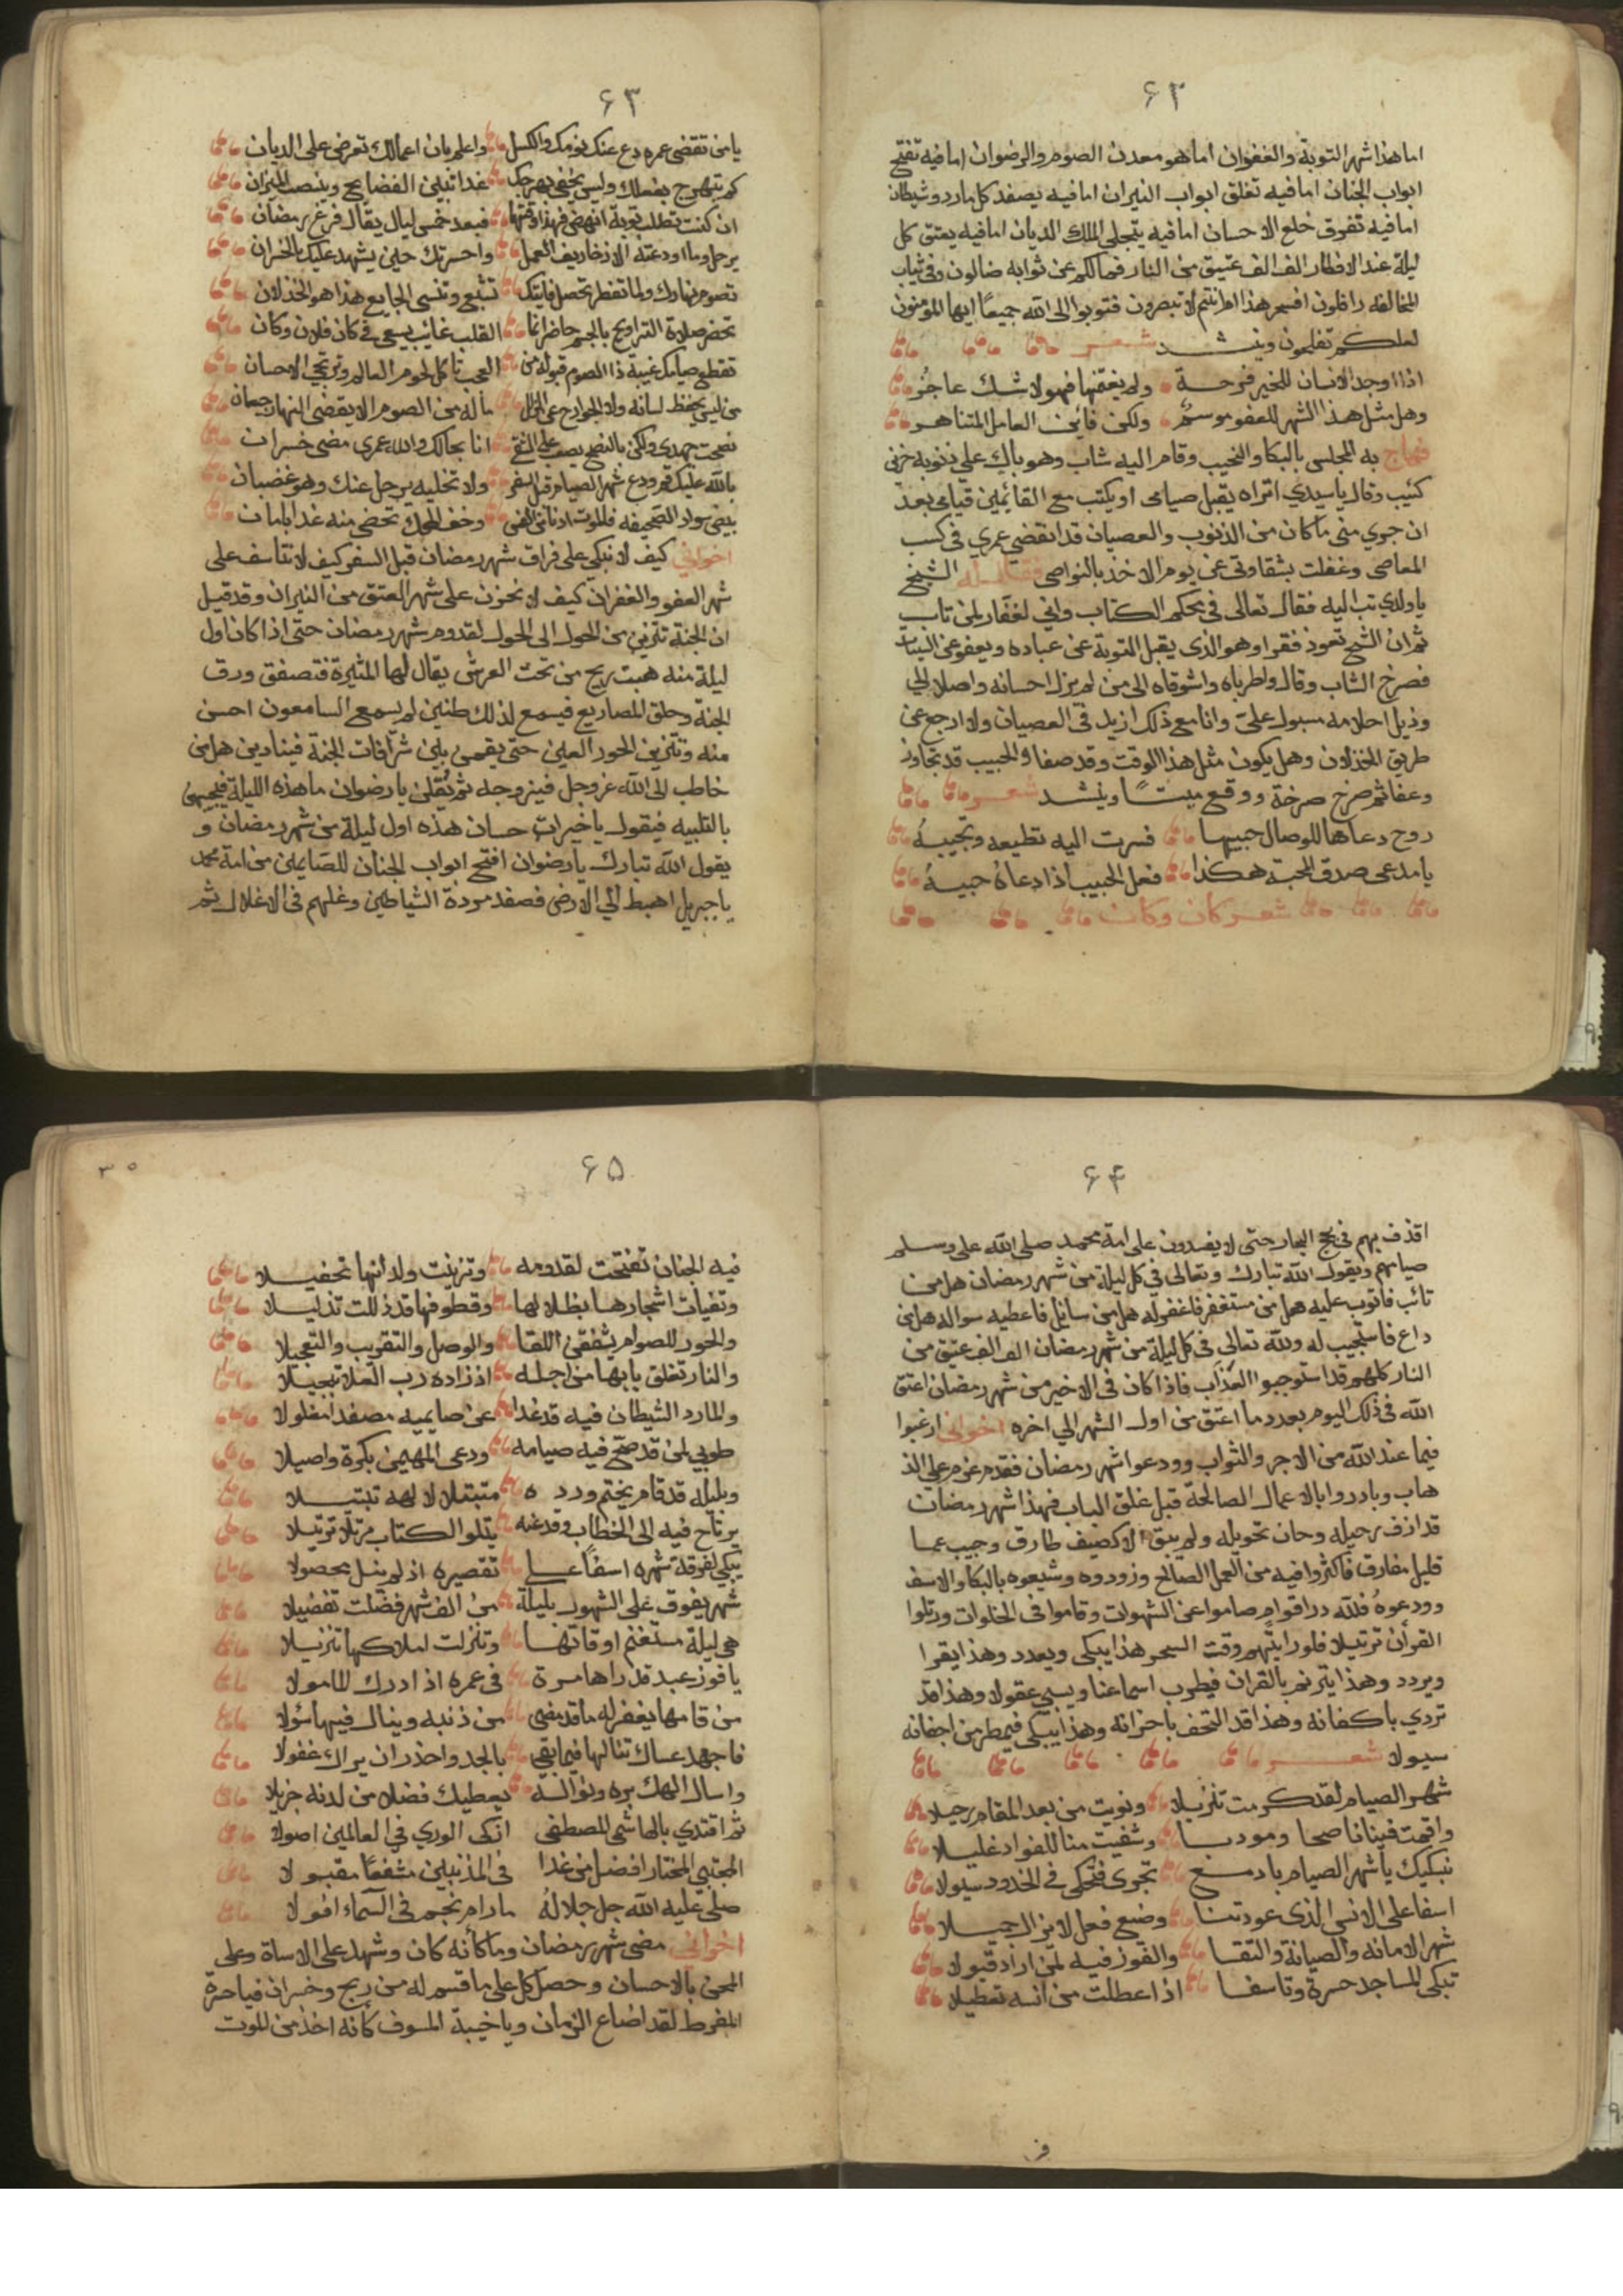 ٦٢
اما هذا شهر التوبة والغفران اما هو معدن الصوم والرضوان اما فيه تفتح
ابواب الجنان اما فيه تغلق ابواب النيران اما فيه يصفد كل مارد وشيطان
اما فيه تفرق خلع الاحسان اما فيه يتجلى الملك الديان اما فيه يعتق كل
ليلة عند الافطار الف الف عتيق من النار فما لكم عن ثوابه ضالون وفي ثياب
المخالفه رافلون افسحر هذا ام انتم لا تبصرون فتوبوا الى الله جميعًا ايها المومنون
لعلكم تفلحون وينشد شعر
اذا وجد الانسان للخير فرحة ولم يغتنمها فهو لا شك عاجز
وهل مثل هذا الشهر للعفو موسمٌ ولكن فاين العامل المتناهز
فهاج به المجلس بالبكا والنحيب وقام اليه شاب وهو باك على ذنوبه حزين
كئيب وقال يا سيدي اتراه يقبل صيامى او يكتب مع القائمين قيامى بعد
ان جرى منى ما كان من الذنوب والعصيان قد انقضى عمري فى كسب
المعاصى وغفلت بشقاوتى عن يوم الاخذ بالنواصى فقال له الشيخ
يا ولدي تب اليه فقال تعالى فى محكم الكتاب وانى لغفار لمن تاب
ثم ان الشيخ تعوذ فقرا وهو الذى يقبل التوبة عن عباده ويعفو عن السيئات
فصرخ الشاب وقال واطرباه واشوقاه الى من لم يزل احسانه واصلا الي
وذيل احلامه مسبول علىّ وانا مع ذلك ازيد فى العصيان ولا ارجع عن
طريق الخذلان وهل يكون مثل هذا الوقت وقد صفا والحبيب قد تجاوز
وعفا ثم صرخ صرخة ووقع ميتًا وينشد شعر
روح دعاها للوصال حبيبها فسرت اليه تطيعه وتجيبهُ
يا مدعى صدق المحبة هكذا فعل الحبيب اذا دعاهُ حبيبهُ
شعر كان وكان
٦٣
يا من تقضى عمره دع عنك نومك والكسل واعلم بان اعمالك تعرض على الديان
كم تبهرج بفعلك وليس يخفى بهرجك غدا تبين الفضايح وينصب الميزان
ان كنت تطلب توبة انهض فهذا وقتها فبعد خمس ليال يقال فرغ رمضان
يرحل وما اودعته الا زخاريف العمل واحسرتك حين يشهد عليك بالخسران
تصوم نهارك ولما تفطر تحصل فايتك تشبع وتنسى الجايع هذا هو الخذلان
تحضر صلاة التراويح بالجسم حاضر انما القلب غايب يسعى فى كان فلان وكان
تقطع صيامك غيبة ذا الصوم قبوله من العجب تاكل لحوم العالم وترتجى الاحسان
من ليس يحفظ لسانه ولا الجوارح عن الزلل ما له من الصوم الا يقضى النهار جيعان
نصحت جهدى ولكن بالنصح يصعب على الشقى انا بحالك والله عمرى مضى خسران
بالله عليك قم ودع شهر الصيام قبل السفر ولا تخليه يرحل عنك وهو غضبان
بيض سواد الصحيفه فالموت ادنانى الفنى وخف المحك تحضى منه غدا بامان
اخوانى كيف لا نبكى على فراق شهر رمضان قبل السفر كيف لا نتاسف على
شهر العفو والغفران كيف لا نحزن على شهر العتق من النيران وقد قيل
ان الجنة تتزين من الحول الى الحول لقدوم شهر رمضان حتى اذا كان اول
ليلة منه هبت ريح من تحت العرش يقال لها المثيرة فتصفق ورق
الجنة وحلق المصاريع فيسمع لذلك طنين لم يسمع السامعون احسن
منه وتتزين الحور العين حتى يقمن بين شرافات الجنة فينادين هل من
خاطب الى الله عز وجل فيزوجه ثم يقلن يا رضوان ما هذه الليلة فيجيبهن
بالتلبيه فيقول يا خيرات حسان هذه اول ليلة من شهر رمضان و
يقول الله تبارك يا رضوان افتح ابواب الجنان للصايمين من امة محمد
يا جبريل اهبط الى الارض فصفد مردة الشياطين وغلهم فى الاغلال ثم
٦٤
اقذف بهم فى لجج البحار حتى لا يفسدون على امة محمد صلى الله على وسلم
صيامهم ويقول الله تبارك وتعالى فى كل ليلة من شهر رمضان هل من
تائب فاتوب عليه هل من مستغفر فاغفر له هل من سايل فاعطيه سواله هل من
داع فاستجيب له ولله تعالى فى كل ليلة من شهر رمضان الف الف عتيق من
النار كلهم قد استوجبوا العذاب فاذا كان فى الاخير من شهر رمضان اعتق
الله فى ذلك اليوم بعدد ما اعتق من اول الشهر الى اخره اخوانى ارغبوا
فيما عند الله من الاجر والثواب وودعوا شهر رمضان فقد عزم على الذ
هاب وبادروا بالاعمال الصالحة قبل غلق الباب فهذا شهر رمضان
قد ازف رحيله وحان تحويله ولم يبق الا كضيف طارق وحبيب عما
قليل مفارق فاكثروا فيه من العمل الصالح وزودوه وشيعوه بالبكا والاسف
وودعوهُ فلله در اقوام صاموا عن الشهوات وقاموا فى الخلوات ورتلوا
القرأن ترتيلا فلو رايتهم وقت السحر هذا يبكى ويعدد وهذا يقرا
ويردد وهذا يترنم بالقران فيطرب اسماعنا ويسبى عقولا وهذا قد
تردي باكفانه وهذا قد التحف باحزانه وهذا يبكى فيمطر من اجفانه
سيولا شعر
شهر الصيام لقد كرمت تنزيلا ونويت من بعد المقام رحيلا
واقمت فينا ناصحا ومودبا وشفيت منا للفواد غليلا
نبكيك يا شهر الصيام بادمع تجرى فتحكى فى الخدود سيولا
اسفا على الانس الذى عودتنا وضيع فعل لا يزال جميلا
شهر الامانه والصيانة والتقا والفوز فيه لمن اراد قبولا
تبكى المساجد حسرة وتاسفا اذا عطلت من انسه تعطيلا
٦٥
٣٥
فيه الجنان تفتحت لقدومه وتزينت ولدانها تحفيلا
وتفيات اشجارها بظلالها وقطوفها قد ذللت تذليلا
والحور للصوام يشفقن اللقا والوصل والتقريب والتعجيلا
والنار تغلق بابها من اجله اذ زاده رب العلا تبجيلا
والمارد الشيطان فيه قد غدا عن صايميه مصفدا مغلولا
طوبى لمن قد صح فيه صيامه ودعى المهيمن بكرة واصيلا
وبليله قد قام يختم ورده متبتلا لالهه تبتيلا
يرتاح فيه الى الخطاب يتلو الكتاب مرتلا ترتيلا
يبكى لفرقة شهره اسفًا على تقصيره اذ لم ينل محصولا
شهر يفوق على الشهور بليلة من الف شهر فضلت تفضيلا
هى ليلة مستغنم اوقاتها وتنزلت املاكها تنزيلا
يا فوز عبد قد راها مرة فى عمره اذ ادرك المامولا
من قامها يغفر له ما قد مضى من ذنبه وينال فيها سؤلا
فاجهد عساك تنالها فيما بقى بالجد واحذر ان يراك غفولا
واسال الهك بره ونواله يعطيك فضلا من لدنه جزيلا
ثم اقتدي بالهاشمى المصطفى ازكى الورى فى العالمين اصولا
المجتبى المختار افضل من غدا فى المذنبين مشفعًا مقبولا
صلى عليه الله جل جلالهُ ما دام نجم فى السماء افولا
اخوانى مضى شهر رمضان وما كأنه كان وشهد على الاساة وعلى
المحسن بالاحسان وحصل كل على ما قسم له من ربح وخسران فيا حسرة
المفرط لقد اضاع الزمان ويا خيبة المسوف كأنه اخذ من الموت